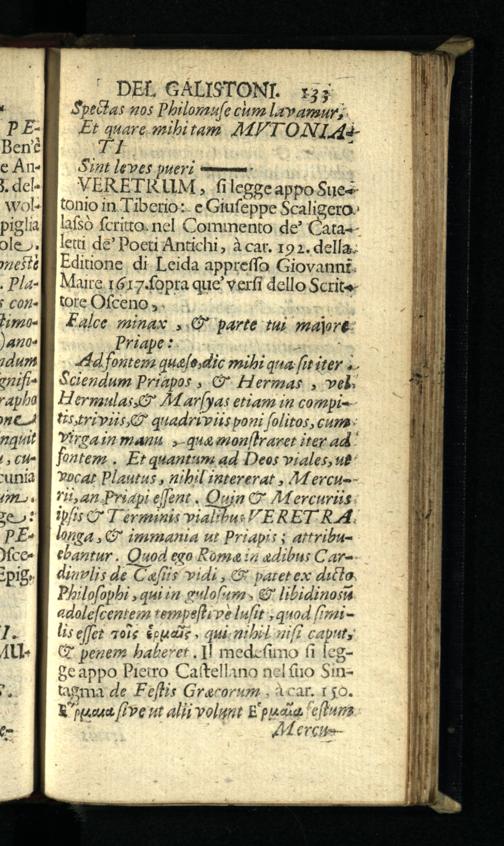 P E-
Ben'è
e An-
B. del-
wol-
piglia
ole.
onestè
. Pla-
s con-
timo-
)ano-
ndum
gnifi-
rapho
one
nquit
, cu-
cunia
um.
ge:
PE-
Osce-
Epig.
I.
MU-
s.
e-
DEL GALISTONI. 133
Spectas nos Philomuse cùm lavamur,
Et quare mihi tam MVTONIA-
TI
Sint leves pueri ———
VERETRUM, si legge appo Sue-
tonio in Tiberio: e Giuseppe Scaligero
lassò scritto nel Commento de' Cata-
letti de' Poeti Antichi, à car. 192. della
Editione di Leida appresso Giovanni
Maire 1617. sopra que' versi dello Scrit-
tore Osceno,
Falce minax, & parte tui majore
Priape:
Ad fontem quæso, dic mihi qua sit iter.
Sciendum Priapos, & Hermas, vel
Hermulas, & Marsyas etiam in compi-
tis, triviis, & quadriviis poni solitos, cum
virga in manu, quæ monstraret iter ad
fontem. Et quantum ad Deos viales, ut
vocat Plautus, nihil intererat, Mercu-
rii, an Priapi essent. Quin & Mercuriis
ipsis & Terminis vialibus VERETRA
longa, & immania ut Priapis; attribu-
ebantur. Quod ego Romæ in ædibus Car-
dinvlis de Cæsiis vidi, & patet ex dicto
Philosophi, qui in gulosum, & libidinosū
adolescentem tempestivè lusit, quod simi-
lis esset τοῖς ἑρμαῖς, qui nihil nisi caput,
& penem haberet. Il medesimo si leg-
ge appo Pietro Castellano nel suo Sin-
tagma de Festis Græcorum, à car. 150.
Ἑρμαια sive ut alii volunt Ἑρμαῖα festum
Mercu-